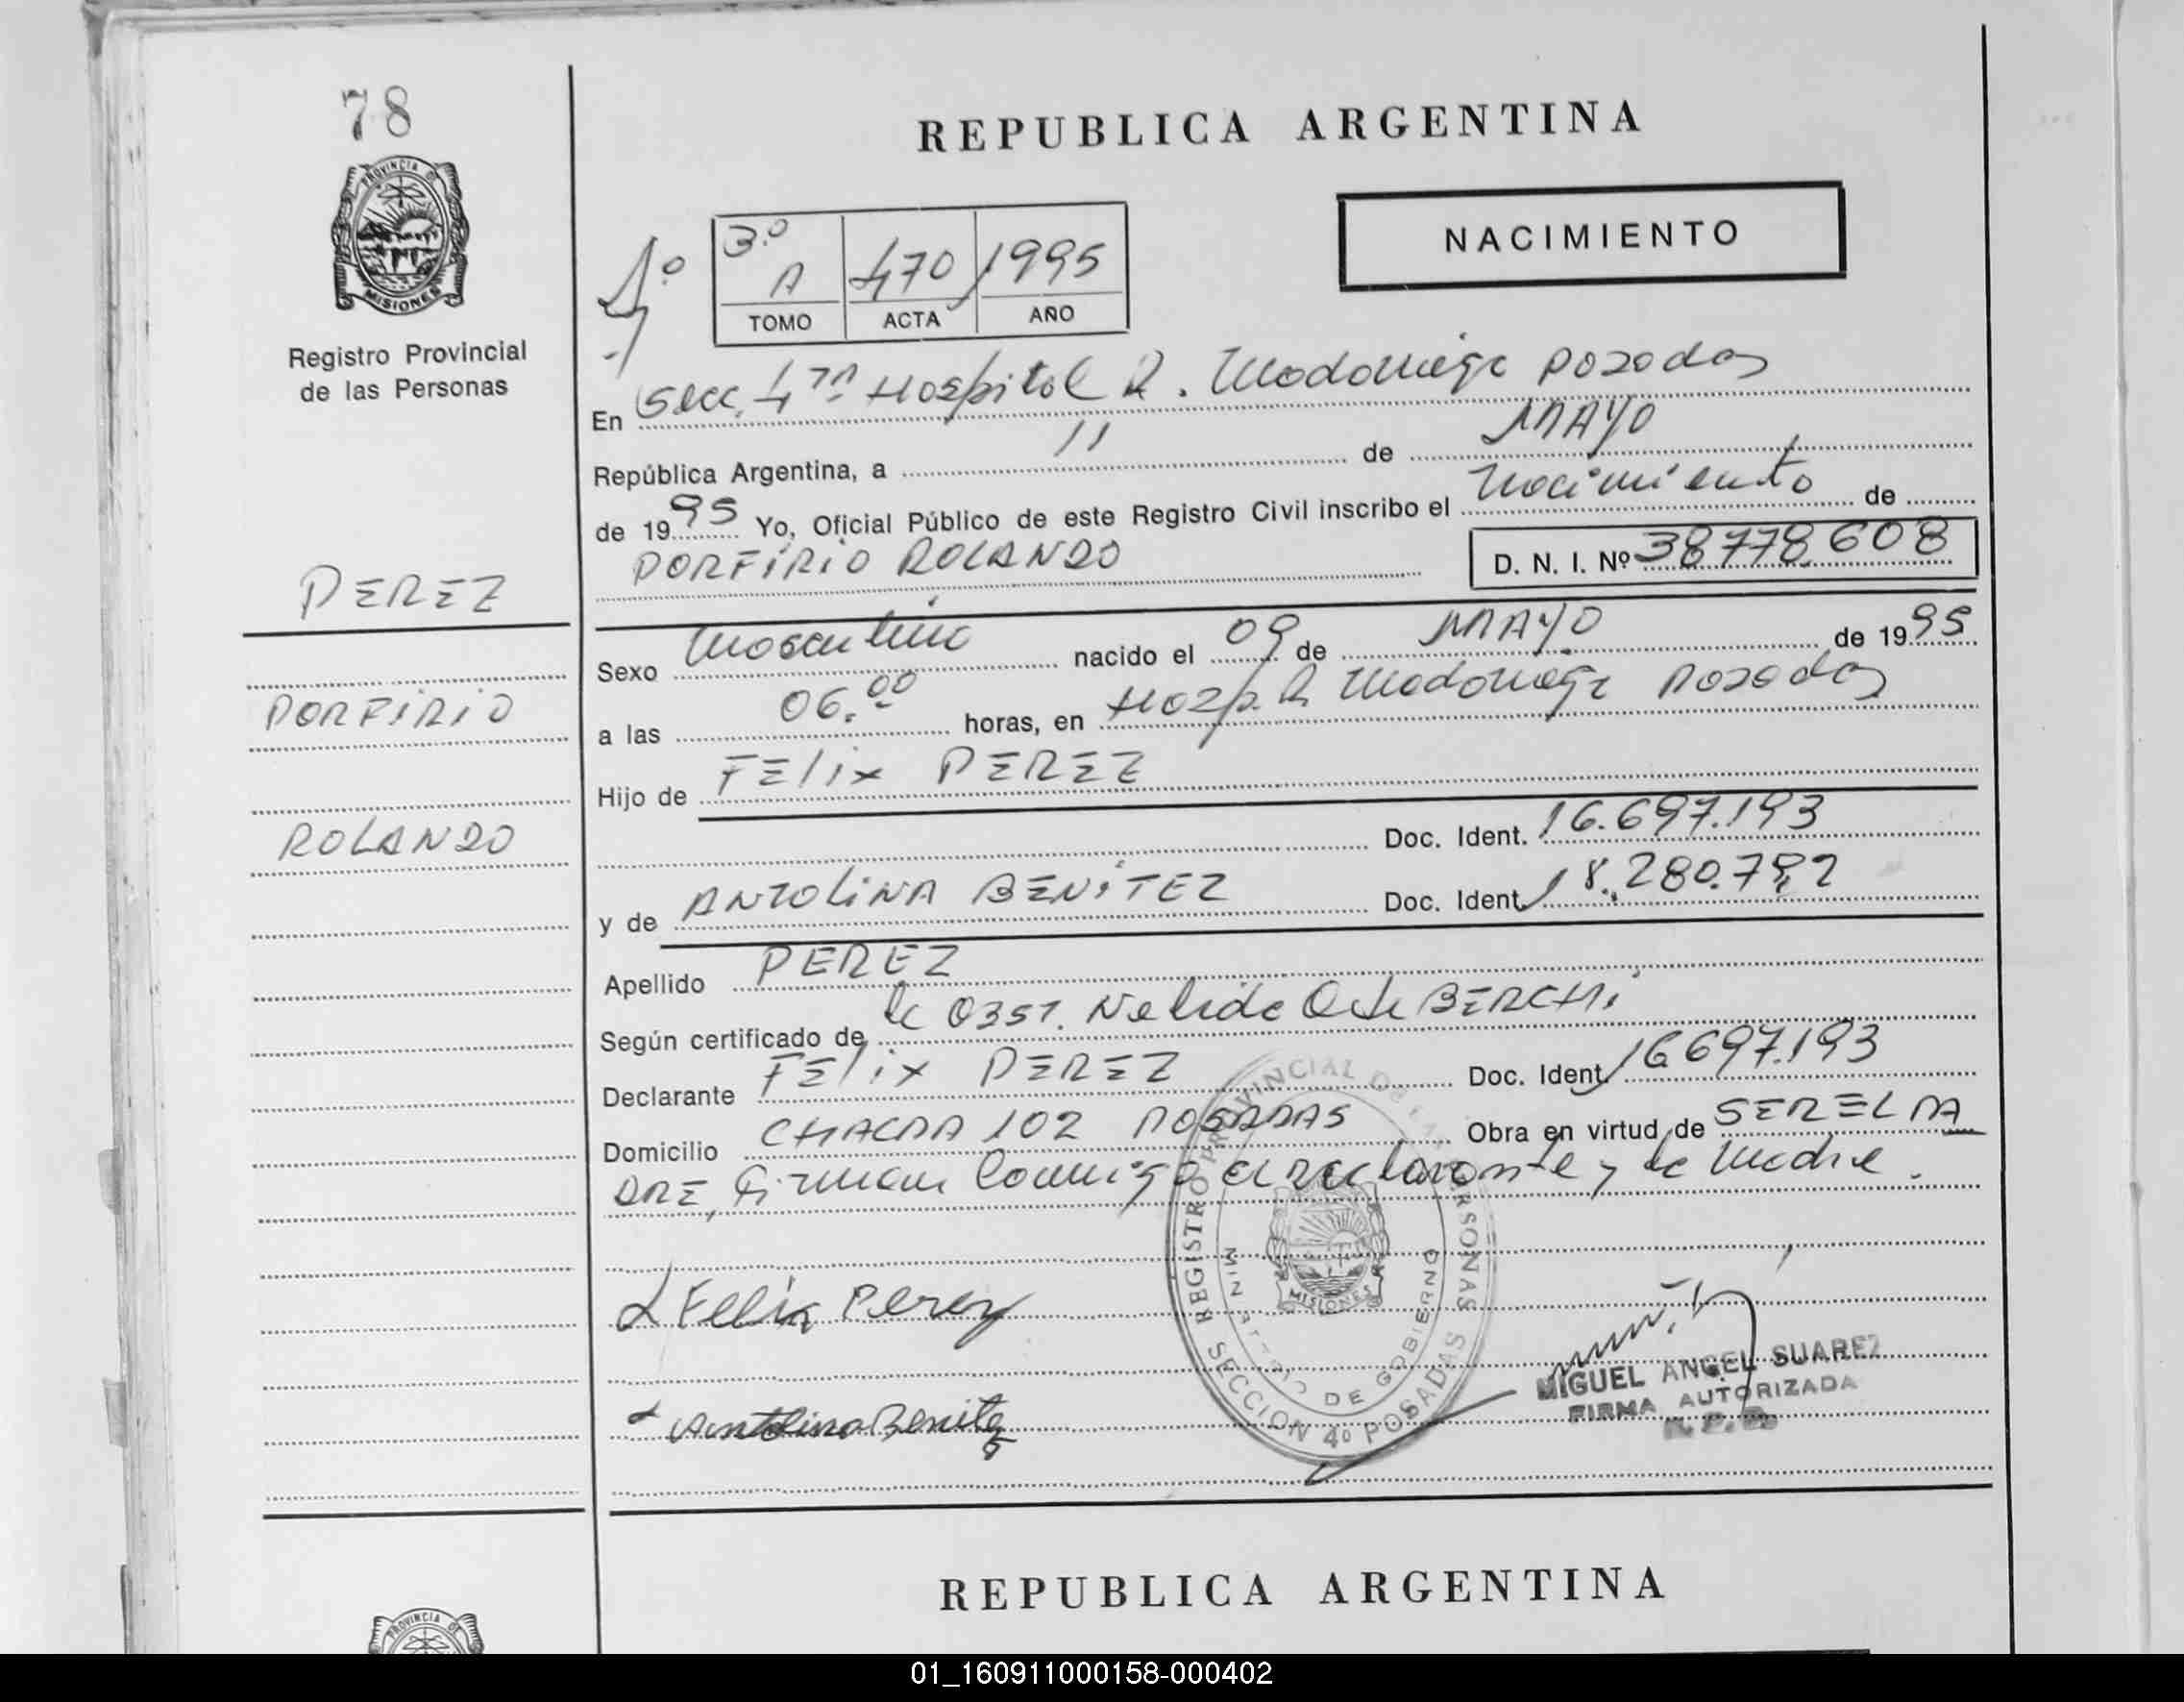 78
PROVINCIA DE
MISIONES
Registro Provincial
de las Personas
REPUBLICA ARGENTINA
NACIMIENTO
3.º
A 470 1995
TOMO ACTA AÑO
En Secc. 4ta Hospital R. Madariaga Posadas
República Argentina, a 11 de MAYO
de 1995 Yo, Oficial Público de este Registro Civil inscribo el Nacimiento de
PORFIRIO ROLANDO
D. N. I. Nº 38778.608
PEREZ
PORFIRIO
ROLANDO
Sexo Masculino nacido el 09 de MAYO de 1995
a las 06.00 horas, en Hosp. R. Madariaga Posadas
Hijo de FELIX PEREZ
Doc. Ident. 16.697.193
y de ANTOLINA BENITEZ Doc. Ident. 18.280.792
Apellido PEREZ
Según certificado de la OBST. Nelida O de BERCHI
Declarante FELIX PEREZ Doc. Ident. 16697.193
Domicilio CHACRA 102 POSADAS Obra en virtud de SER EL PA
DRE, Firman Conmigo el declarante y la Madre.
Felix Perez
Antolina Benitez
REGISTRO PROVINCIAL DE LAS PERSONAS
MINISTERIO DE GOBIERNO
MISIONES
SECCION 4º POSADAS
MIGUEL ANGEL SUAREZ
FIRMA AUTORIZADA
R. P. P.
REPUBLICA ARGENTINA
PROVINCIA DE
01_160911000158-000402